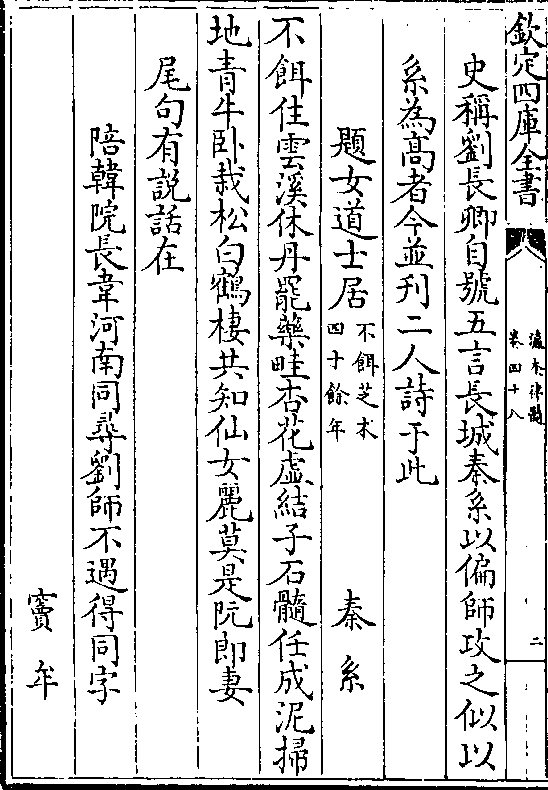 欽定四庫全書
瀛奎律髓
卷四十八
二
史稱劉長卿自號五言長城秦系以偏師攻之似以
系為髙者今並刋二人詩于此
題女道士居 不餌芝术
四十餘年 秦系
不餌住雲溪休丹罷藥畦杏花虚結子石髓任成泥掃
地青牛卧栽松白鶴棲共知仙女麗莫是阮郎妻
尾句有説話在
陪韓院長韋河南同尋劉師不遇得同字
竇牟